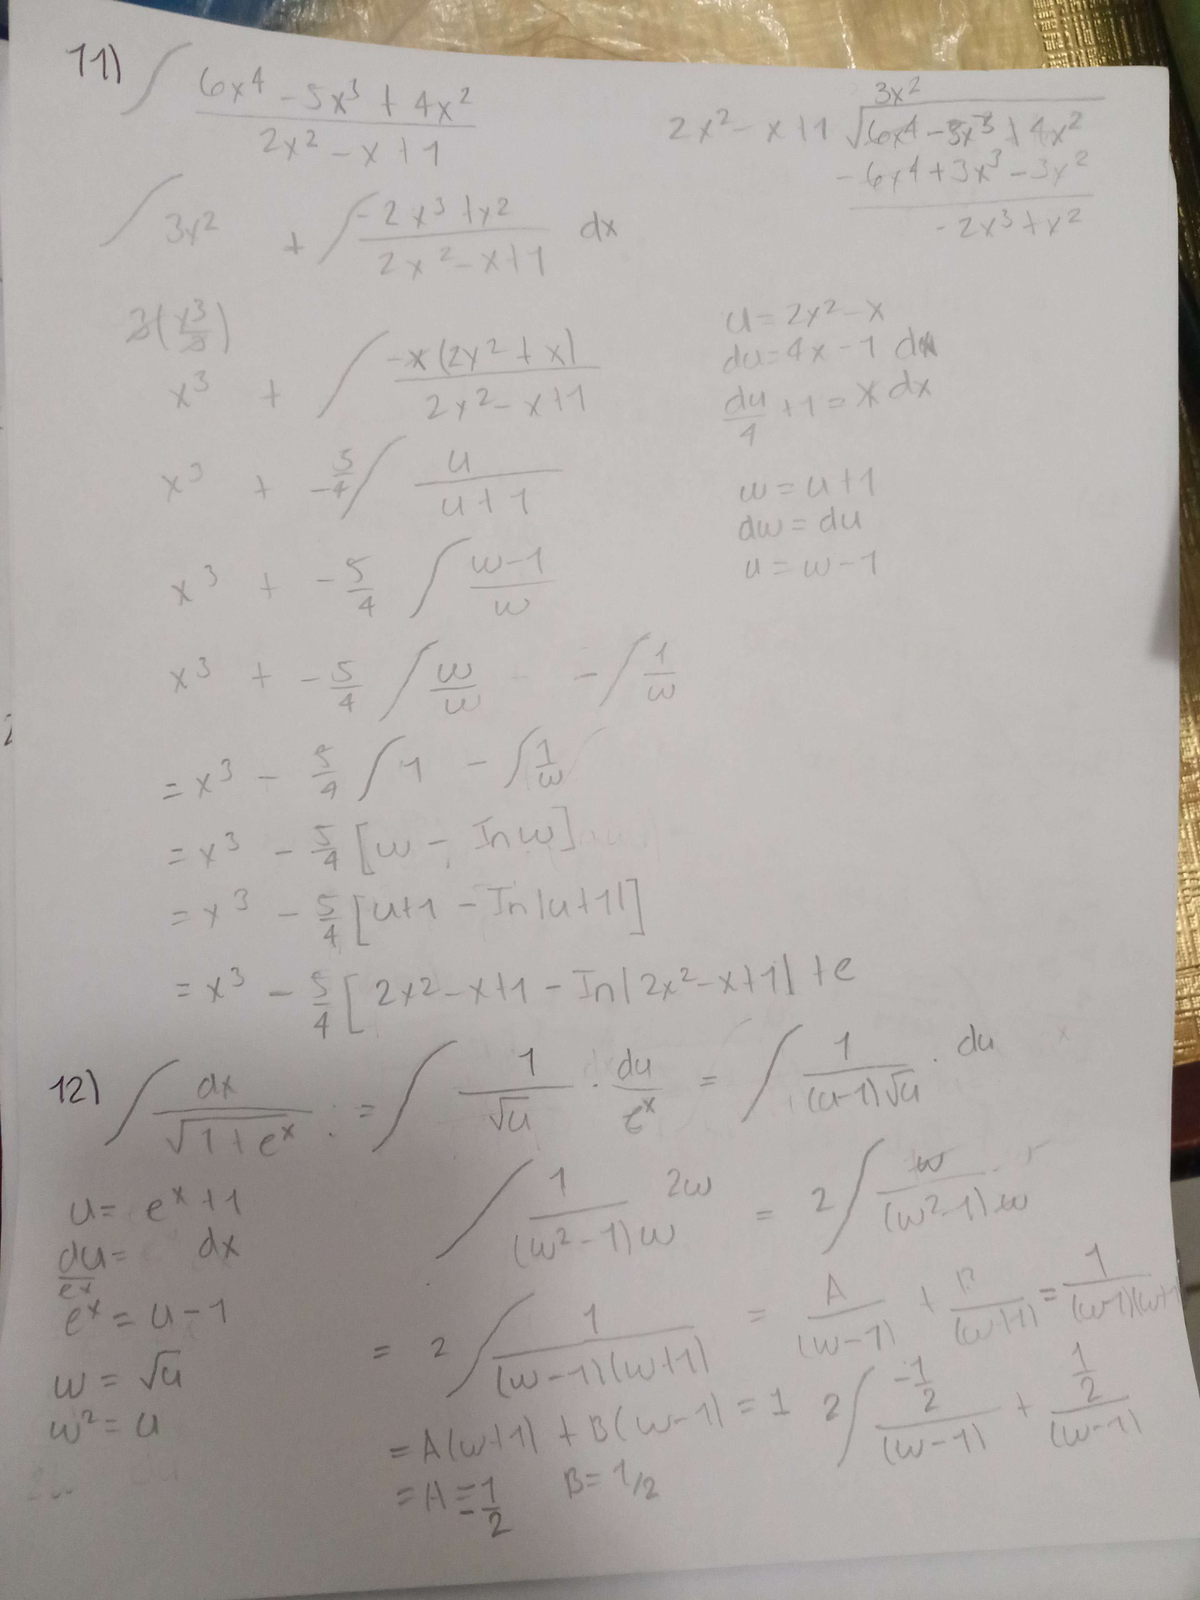 11) ∫ (6x⁴ - 5x³ + 4x²)/(2x² - x + 1)
3x²
2x² - x + 1 √(6x⁴ - 5x³ + 4x²)
-6x⁴ + 3x³ - 3x²
-2x³ + x²
∫ 3x² + ∫ (-2x³ + x²)/(2x² - x + 1) dx
3(x³/3)
x³ + ∫ -x(2x² + x)/(2x² - x + 1)
u = 2x² - x
du = 4x - 1 dx
du/4 + 1 = x dx
x³ + -5/4 ∫ u/(u + 1)
w = u + 1
dw = du
u = w - 1
x³ + -5/4 ∫ (w - 1)/w
x³ + -5/4 ∫ w/w - ∫ 1/w
= x³ - 5/4 ∫ 1 - ∫ 1/w
= x³ - 5/4 [w - ln w]
= x³ - 5/4 [u+1 - ln|u+1|]
= x³ - 5/4 [2x² - x + 1 - ln|2x² - x + 1| + c
12) ∫ dx/√(1 + eˣ) = ∫ 1/√u · du/eˣ = ∫ 1/((u-1)√u) · du
u = eˣ + 1
du/eˣ = dx
eˣ = u - 1
w = √u
w² = u
∫ 1/((w² - 1)w) 2w = 2 ∫ w/((w² - 1)w)
= 2 ∫ 1/((w-1)(w+1)) = A/(w-1) + B/(w+1) = 1/((w-1)(w+1)
= A(w+1) + B(w-1) = 1 2 ∫ (-1/2)/(w-1) + (1/2)/(w-1)
= A = -1/2 B = 1/2